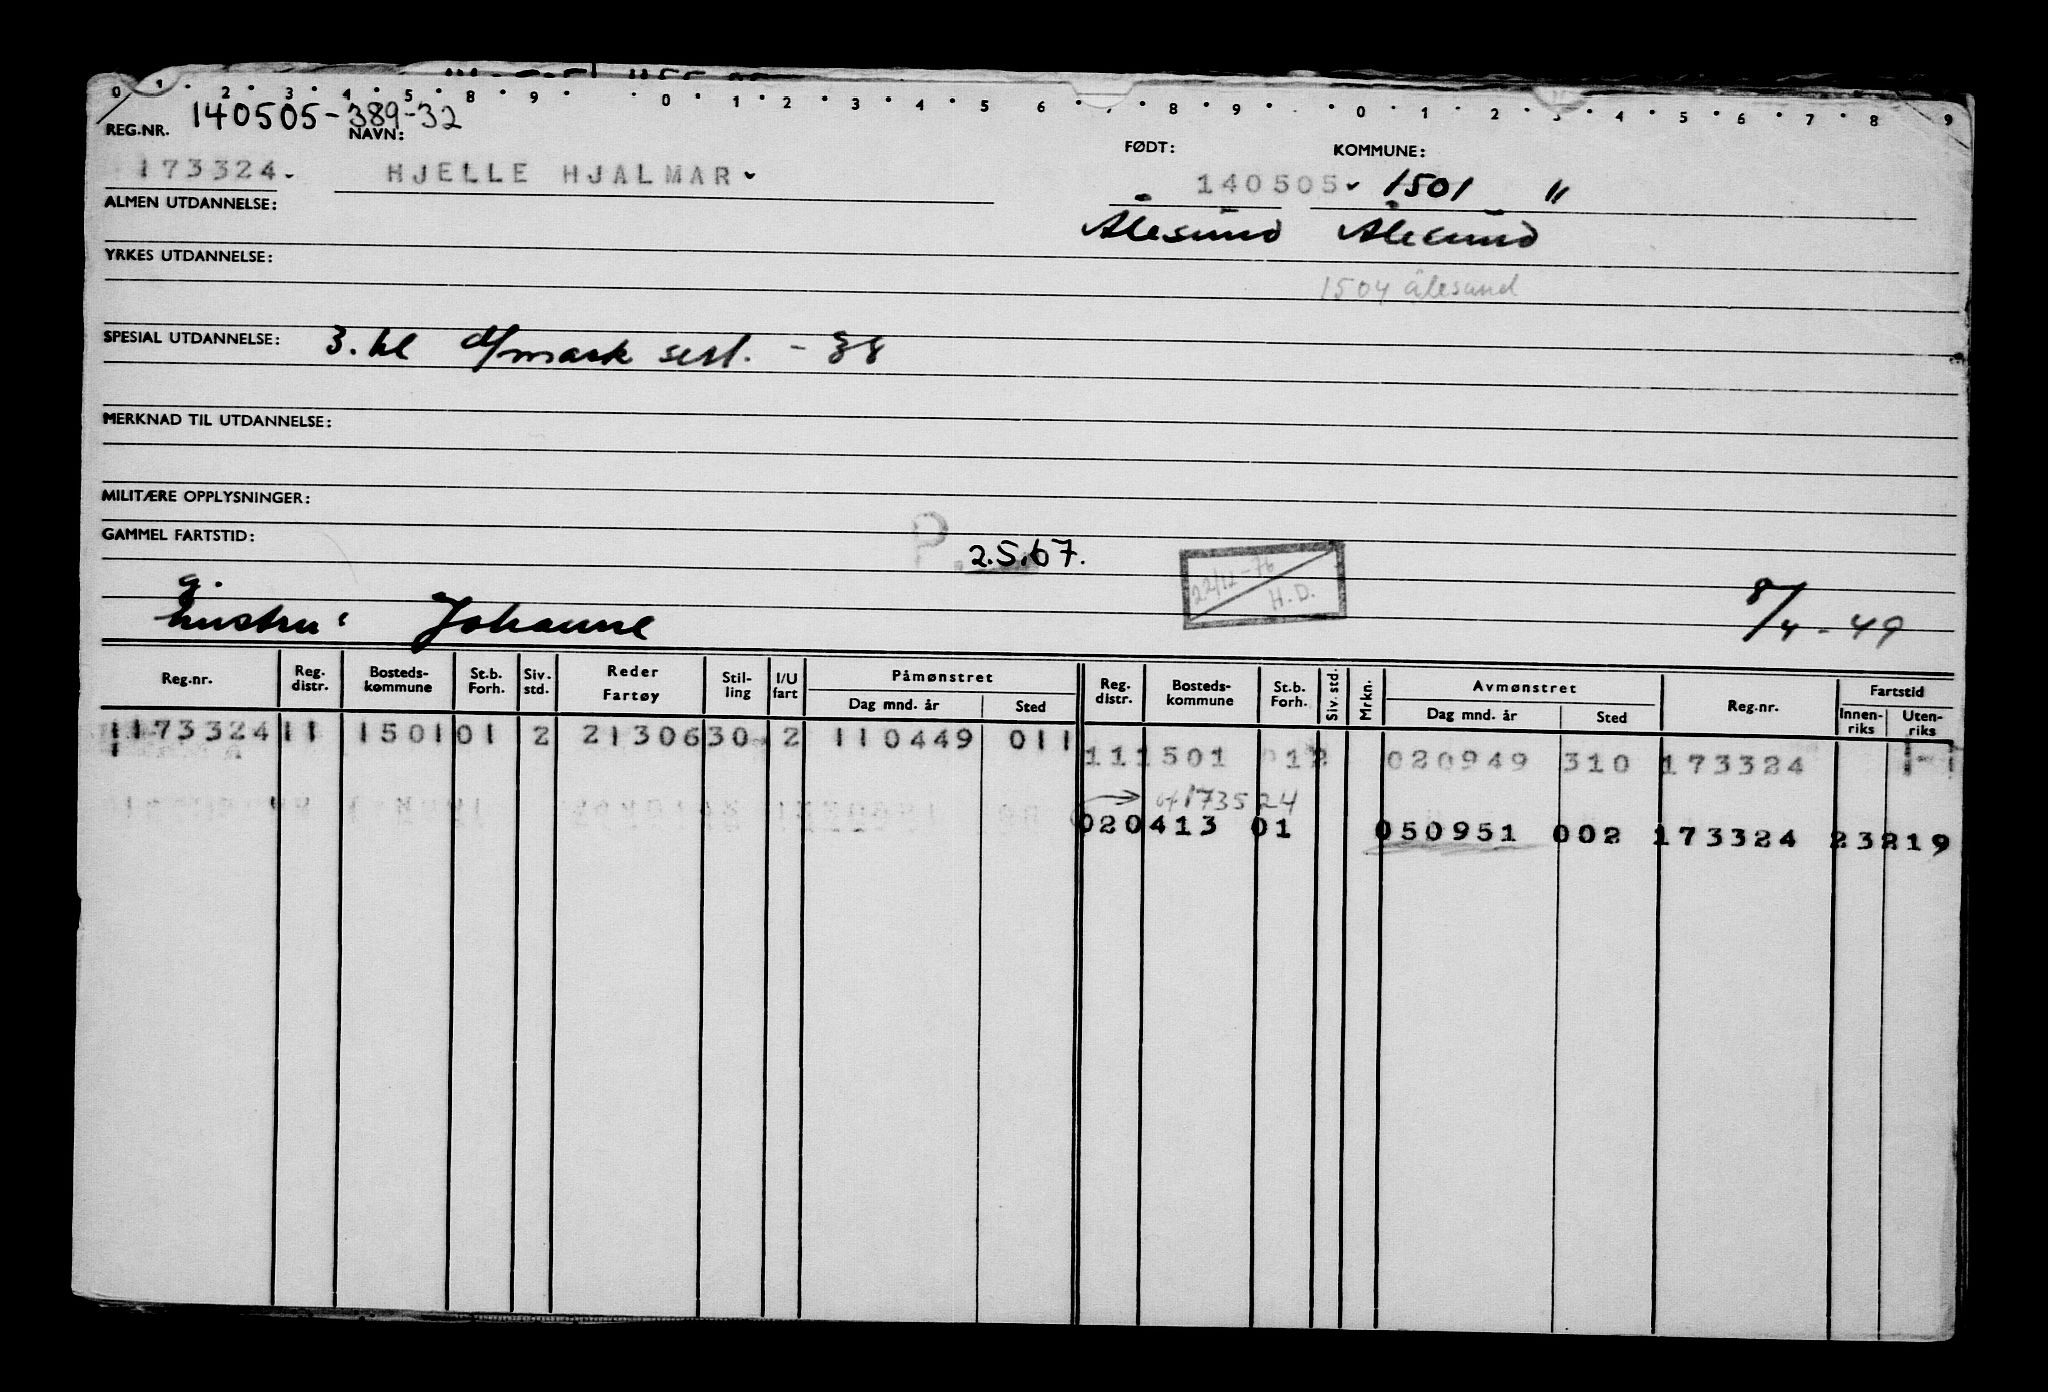 0 1 2 3 4 5 8 9 0 1 2 3 4 5 6 8 9 0 1 2 3 4 5 6 7 8 9
140505-389-32
REG.NR. NAVN: FØDT: KOMMUNE:
173324. HJELLE HJALMAR 140505 1501 "
ALMEN UTDANNELSE:
Ålesund Ålesund
YRKES UTDANNELSE:
1504 ålesund
SPESIAL UTDANNELSE: 3. kl d/mask sert. - 38
MERKNAD TIL UTDANNELSE:
MILITÆRE OPPLYSNINGER:
GAMMEL FARTSTID:
P. 2.5.67.
22/12-76 H.D.
g.
hustru: Johanne 8/4-49
Reg.nr. Reg. distr. Bosteds-kommune St.b. Forh. Siv. std. Reder Fartøy Stil-ling I/U fart Påmønstret Dag mnd. år Sted Reg. distr. Bosteds-kommune St.b. Forh. Siv. std. Mrkn. Avmønstret Dag mnd. år Sted Reg.nr. Fartstid Innen-riks Uten-riks
173324 11 1501 01 2 21306 30 2 110449 011
11 1501 012 020949 310 173324
173524
020413 01 050951 002 173324 23219